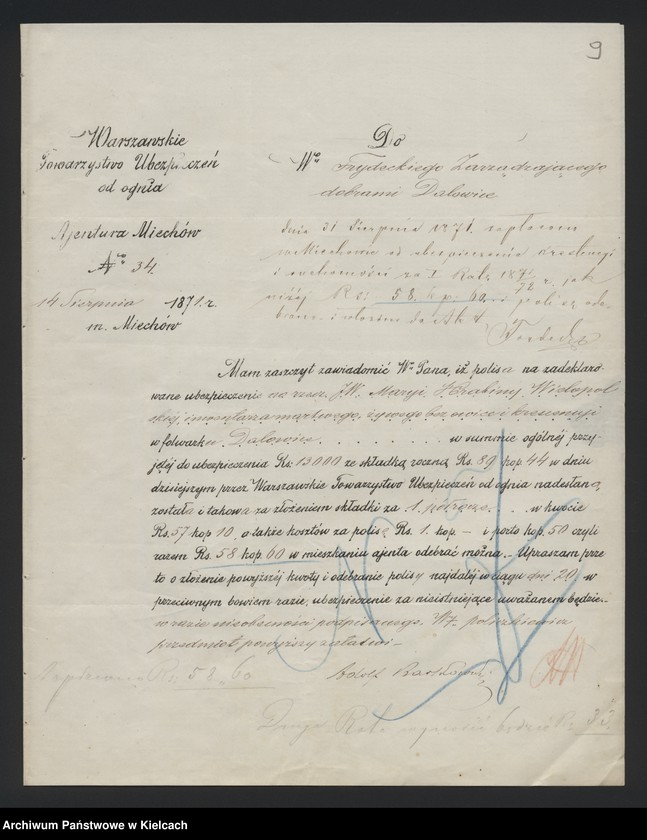 9
Warszawskie
Towarzystwo Ubezpieczeń
od ognia
Ajentura Miechów
No 34.
14 Sierpnia 1871. r.
m. Miechów
Do
Wgo Frydeckiego Zarządzającego
dobrami Dalowice
dnia 31 Sierpnia 1871. zapłacono
w Miechowie od ubezpieczenia krestencyi
i ruchomości za I Ratę 1871/72 r. jak
niżéj Rs: 58. kp. 60.
Mam zaszczyt zawiadomić Wgo Pana, iż polisa na zadeklaro-
wane ubezpieczenie na rzecz JW. Maryi Hrabiny Wielopol-
skiéj inwentarza martwego, żywego bez owiec i krescencyi
w folwarku Dalowice . . . . . . . . . w summie ogólnéj przy-
jętéj do ubezpieczenia Rs. 13000 ze składką roczną Rs. 89 kop. 44 w dniu
dzisiejszym przez Warszawskie Towarzystwo Ubezpieczeń od ognia nadesłaną
została i takowa za złożeniem składki za 1. półrocze . . w kwocie
Rs. 57 kop 10, a także kosztów za polisę Rs. 1. kop. – i porto kop. 50 czyli
razem Rs. 58 kop. 60 w mieszkaniu ajenta odebrać można. – Upraszam prze-
to o złożenie powyższéj kwoty i odebranie polisy najdaléj w ciągu dni 20, w
przeciwnym bowiem razie, ubezpieczenie za nieistniejące uważanem będzie. –
w razie nieobecności podpisanego, W.
przedmiot powyższy załatwi –
Adolf
Zapłacono Rs. 58. 60
Druga Rata wynosić będzie Rs
Archiwum Państwowe w Kielcach